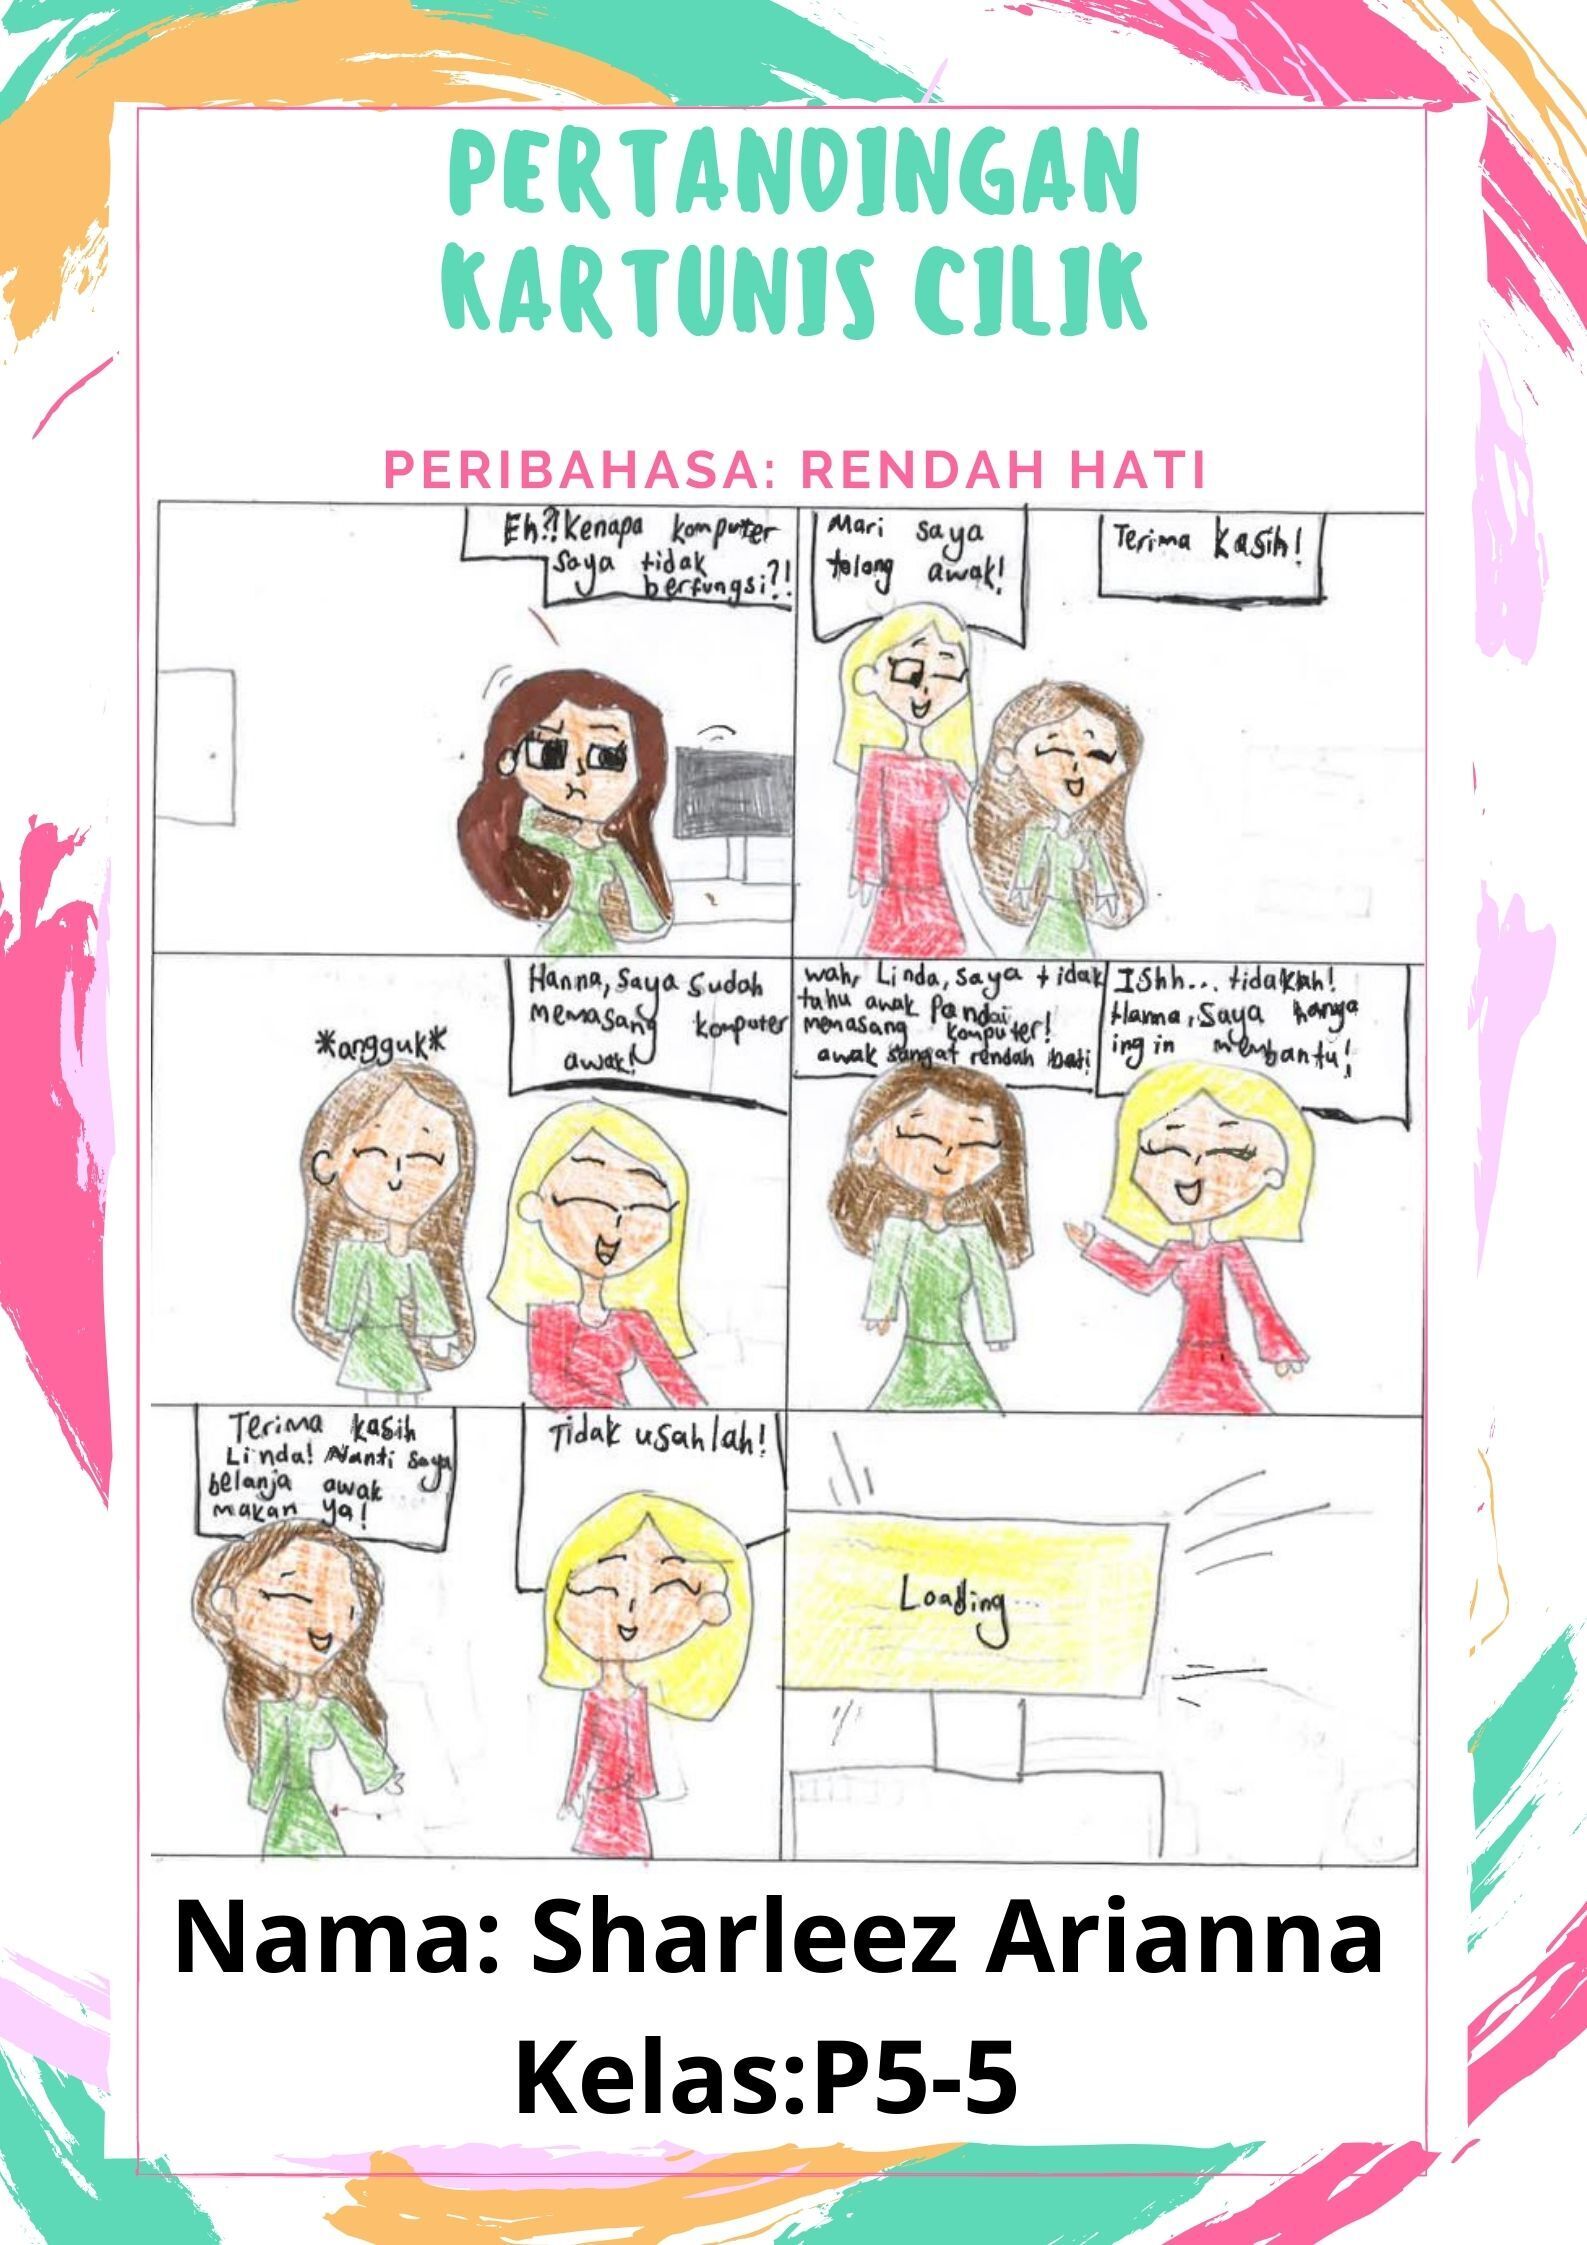 PERTANDINGAN
KARTUNIS CILIK
PERIBAHASA: RENDAH HATI
Eh?! Kenapa komputer
saya tidak
berfungsi?!
Mari saya
tolong awak!
Terima kasih!
*angguk*
Hanna, saya sudah
memasang komputer
awak!
wah, Linda, saya tidak
tahu awak pandai
memasang komputer!
awak sangat rendah hati!
Ishh... tidaklah!
Hanna, saya hanya
ingin membantu!
Terima kasih
Linda! Nanti saya
belanja awak
makan ya!
Tidak usahlah!
Loading...
Nama: Sharleez Arianna
Kelas:P5-5